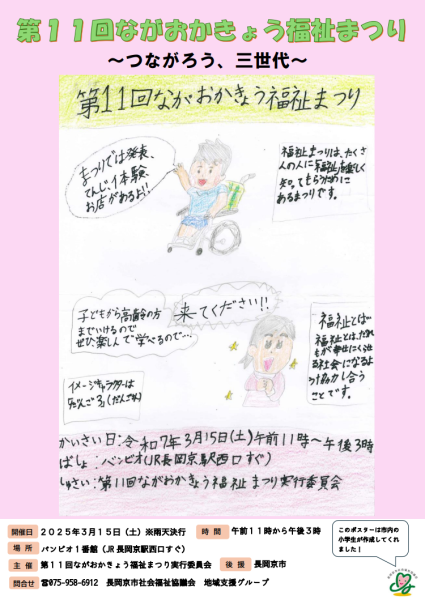 第11回ながおかきょう福祉まつり
～つながろう、三世代～
第11回ながおかきょう福祉まつり
まつりでは発表、
てんじ、体験、
お店があるよ!!
福祉まつりは、たくさ
んの人に福祉を楽しく
知ってもらうために
あるまつりです。
子どもから高齢の方
までいけるので
ぜひ楽しんで学べるので…
来てください!!
福祉とは…
福祉とは、だれ
もが幸せにくらせ
る社会になるよ
う協力し合う
ことです。
イメージキャラクターは
かいさい日:令和7年3月15日(土)午前11時～午後3時
ばしょ:バンビオ(JR長岡京駅西口すぐ)
しゅさい:第11回ながおかきょう福祉まつり実行委員会
開催日 2025年3月15日（土）※雨天決行 時間 午前11時から午後3時
場所 バンビオ1番館（JR長岡京駅西口すぐ）
主催 第11回ながおかきょう福祉まつり実行委員会 後援 長岡京市
問合せ ☎075-958-6912 長岡京市社会福祉協議会 地域支援グループ
このポスターは市内の
小学生が作成してくれ
ました！